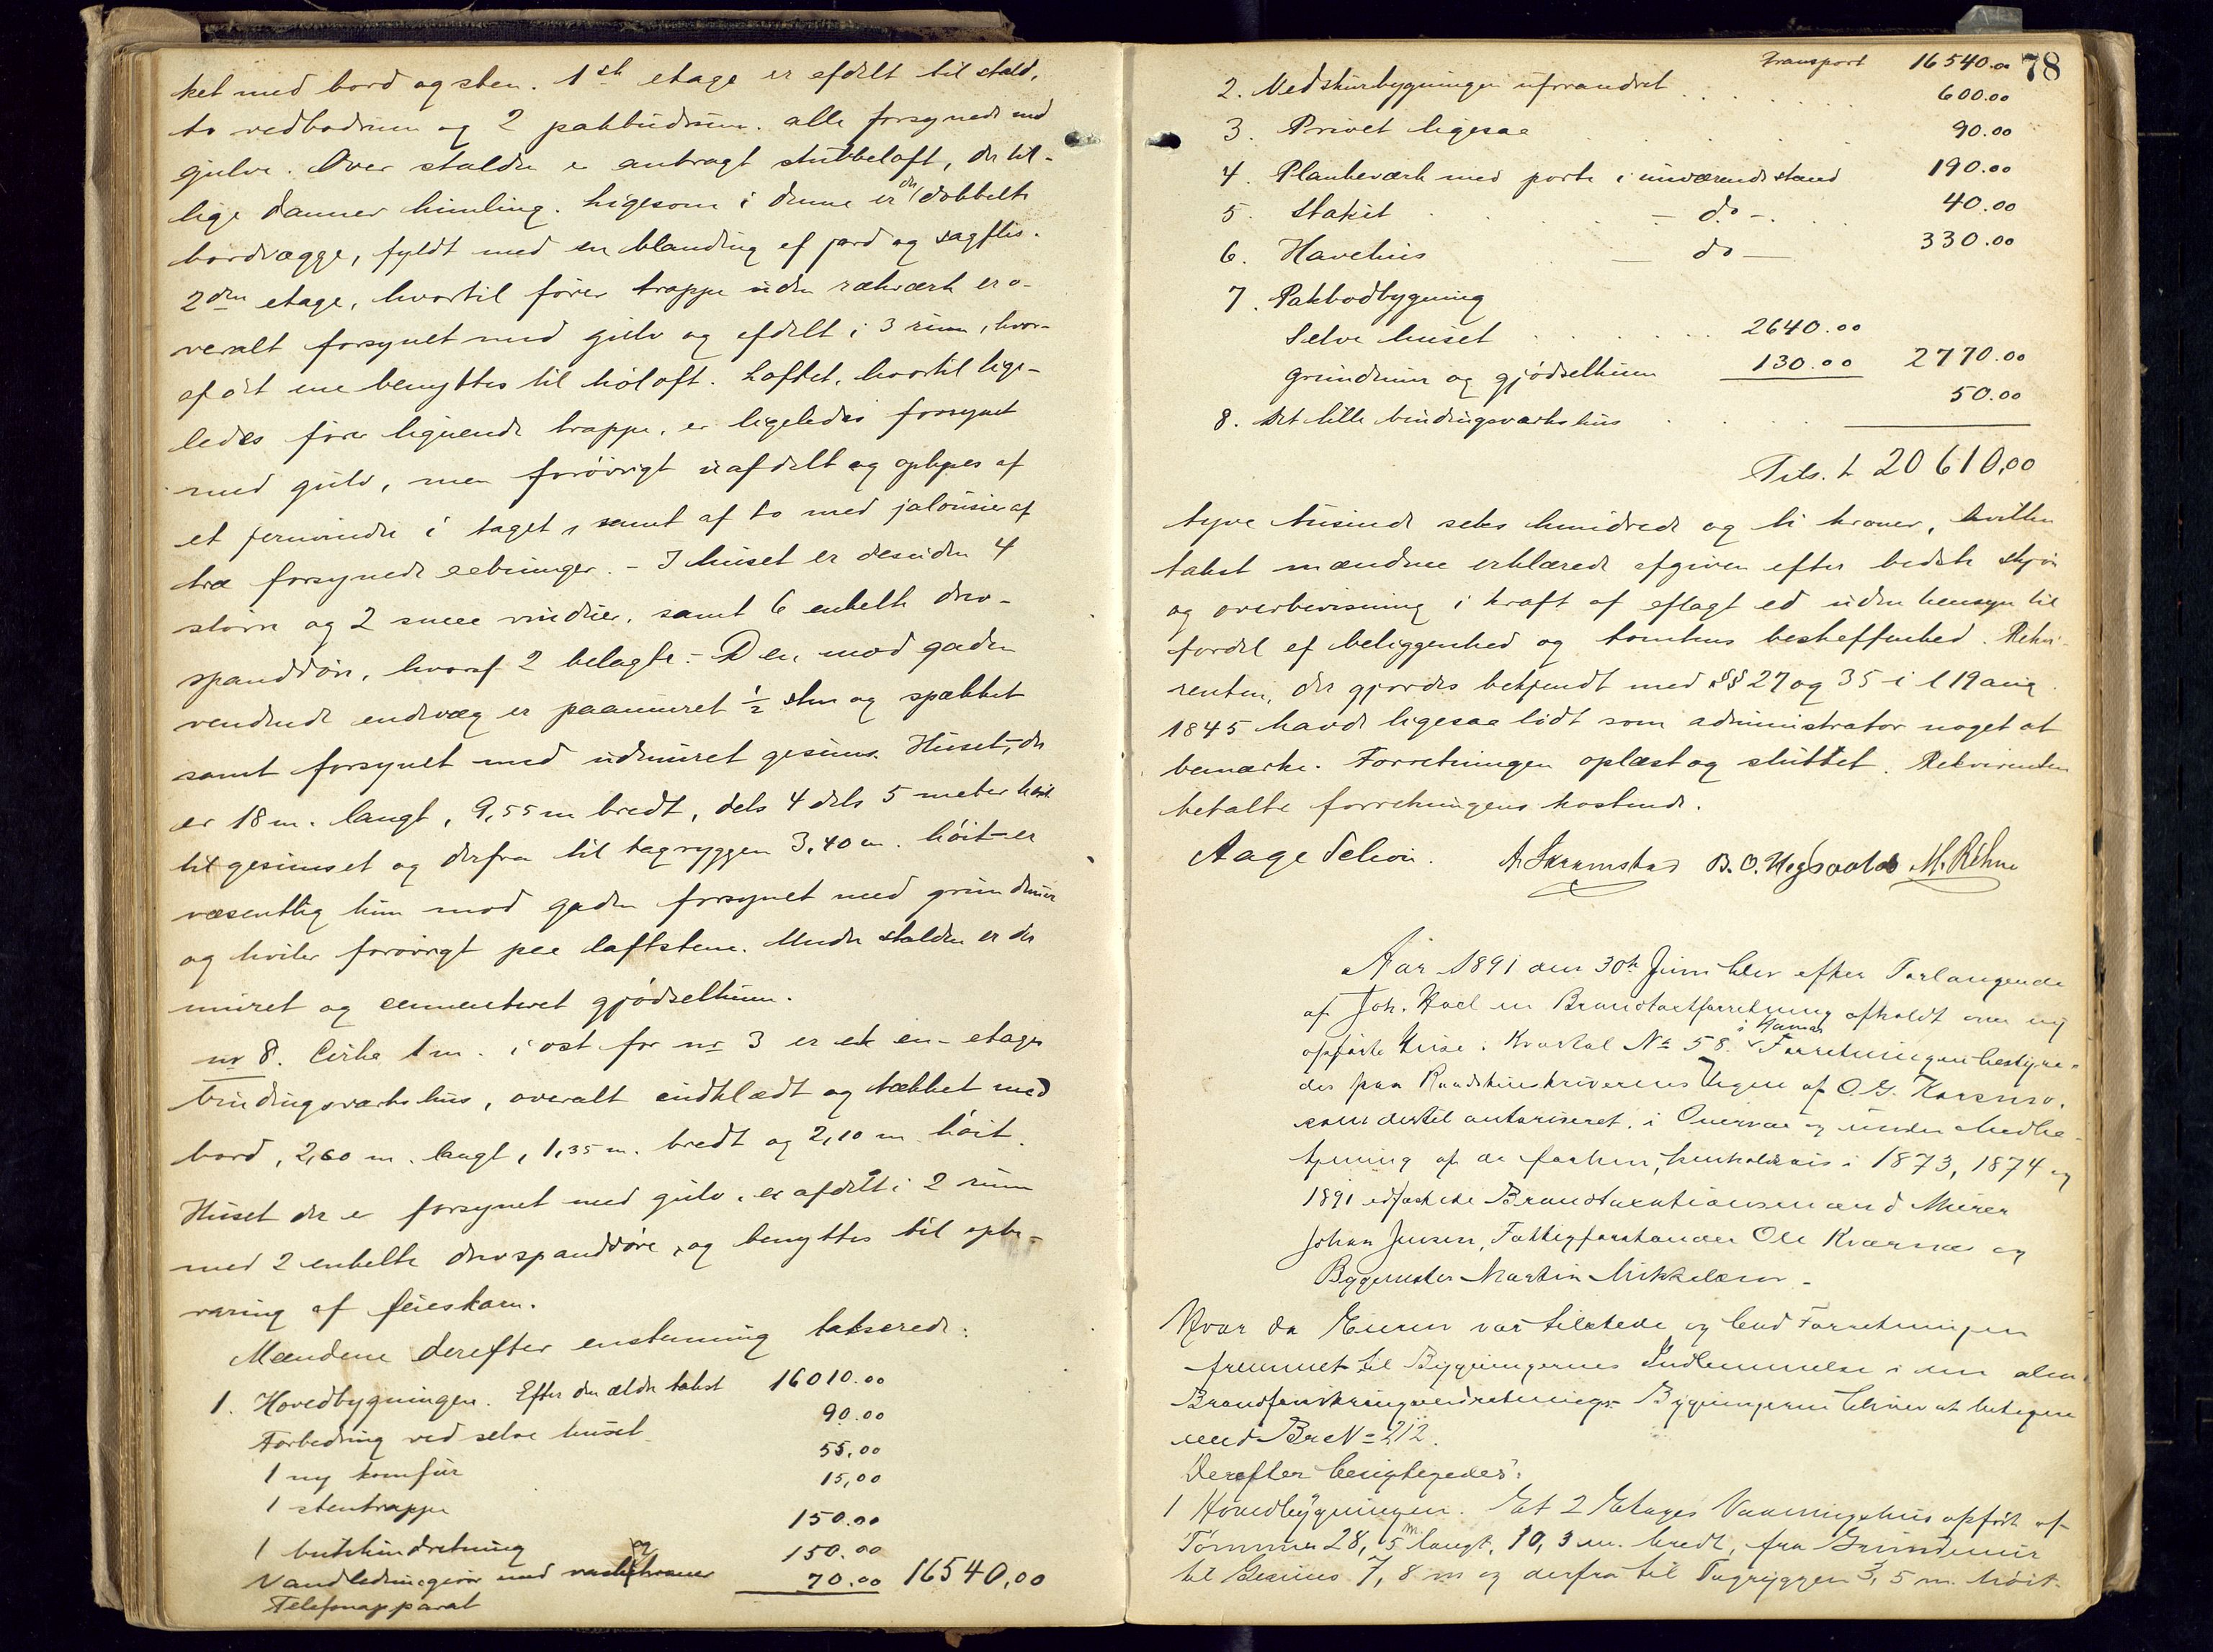 ket med bord og sten. 1ste etage er afdelt til stald,
to vedbodrum og 2 pakbudrum. alle forsynede med
gulve. Over stalden er anbragt stubbeloft, der til-
lige danner himling. Ligesom i denne er der dobbelte
bordvægge, fyldt med en blanding af jord og sagflis.
2den etage, hvortil fører trappe uden rækværk er o-
veralt forsynet med gulv og afdelt i 3 rum, hvor-
af det ene benyttes til høloft. Loftet, hvortil lige-
ledes fører lignende trappe, er ligeledes forsynet
med gulv, men forøvrigt uafdelt og oplyses af
et jernvindu i taget, samt af to med jalousier af
træ forsynede aabninger. – I huset er desuden 4
større og 2 smaa vinduer, samt 6 enkelte drev-
spanddøre, hvoraf 2 belagte. – Den mod gaden
vendende endevæg er paamuret ½ sten og spækket
samt forsynet med udmuret gesims. Huset, der
er 18 m. langt, 9,55 m bredt, dels 4 dels 5 meter høit
til gesimset og derfra til tagryggen 3,40 m. høit – er
væsentlig kun mod gaden forsynet med grundmur
og hviler forøvrigt paa laftstene. Under stalden er der
muret og cementeret gjødselkum.
no 8. Cirka 1 m. i øst for no 3 er et en-etages
bindingsværkshus, overalt indklædt og tækket med
bord, 2,60 m. langt, 1,35 m. bredt og 2,10 m høit.
Huset der er forsynet med gulv, er afdelt i 2 rum
med 2 enkelte drevspanddøre, og benyttes til opbe-
varing af feieskarn.
Mændene derefter enstemmig takserede:
1. Hovedbygningen. Efter den ældre takst 16010.00
Forbedring ved selve huset 90.00
1 ny komfur 55,00
1 stentrappe 15,00
1 butikindretning 150.00
Vandledningsrør med vask og kraner 150.00
Telefonapparat 70.00 16540,00
78
Transport 16540.00
2. Vedskurbygningen uforandret 600.00
3. Privet ligesaa 90.00
4. Plankeværk med porte i nuværende stand 190.00
5. Stakit – do – 40.00
6. Havehus – do – 330.00
7. Pakbodbygning
Selve huset 2640.00
grundmur og gjødselkum 130.00 2770.00
8. Det lille bindingsværkshus 50.00
Tils. k 20610,00
tyve tusinde seks hundrede og ti kroner, hvilken
takst mændene erklærede afgiven efter bedste skjøn
og overbevisning i kraft af aflagt ed uden hensyn til
fordel af beliggenhed og tomtens beskaffenhed. Rekvi-
renten, der gjordes bekjendt med §§ 27 og 35 i l 19 aug
1845 havde ligesaa lidt som administrator noget at
bemærke. Forretningen oplæst og sluttet. Rekvirenten
betalte forretningens kostende.
Aage Schou. A Skramstad B. O. Hegsvold M. Røhne
Aar 1891 den 30te Juni blev efter Forlangende
af Joh. Hoel en Brandtaxtforretning afholdt over ny
opførte Huse i Kvartal No 58 i Hamar. Forretningen bestyre-
des paa Raadstueskriverens Vegne af O. G. Karenso,
som dertil autoriseret, i Overvær og under Medbe-
tjening af de faste, henholdsvis i 1873, 1874 og
1891 edfæstede Brandtaxationsmænd Murer
Johan Jensen, Fattigforstander Ole Kværnæs og
Bygmester Martin Mikkelsen. –
Hvor da Eieren var tilstede og bad Forretningen
fremmet til Bygningernes Indlemmelse i den alm.
Brandforsikringsindretning. Bygningerne bliver at betegne
med Br No 212.
Derefter besigtigedes:
1 Hovedbygningen. Et 2 Etages Vaaningshus opført af
Tømmer 28,5 m langt, 10,3 m. bredt, fra Grundmur
til Gesims 7,8 m og derfra til Tagryggen 3,5 m. høit.